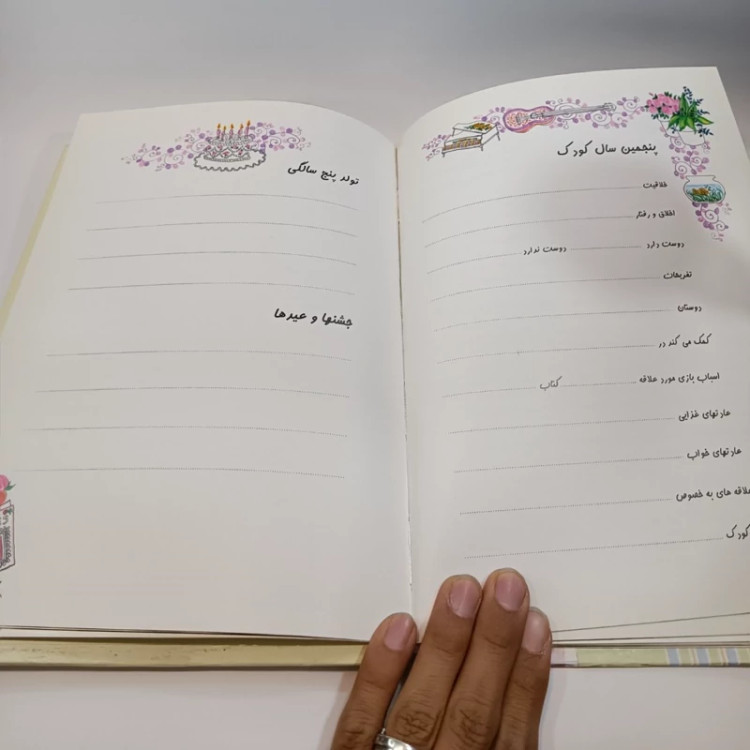 پنجمین سال کودک
خلاقیت
اخلاق و رفتار
دوست دارد دوست ندارد
تفریحات
دوستان
کمک می کند در
اسباب بازی مورد علاقه کتاب
عادتهای غذایی
عادتهای خواب
علاقه های به خصوص
کودک
تولد پنج سالگی
جشنها و عیدها